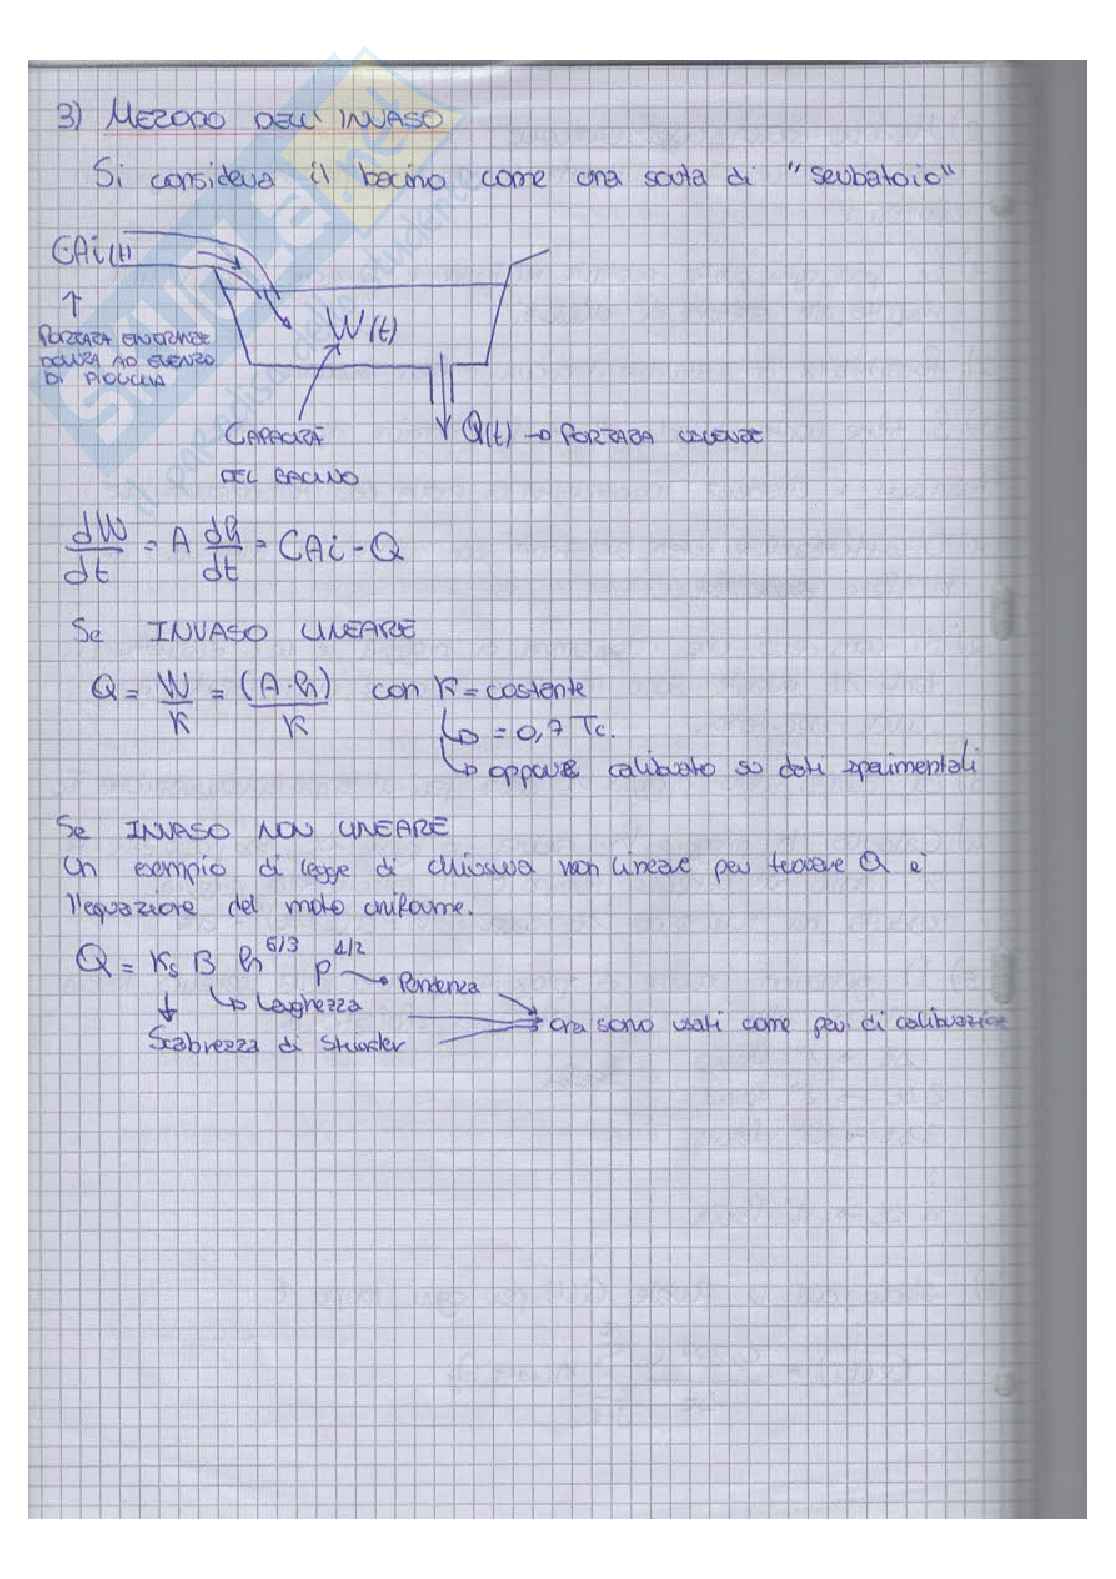 3) METODO DELL' INVASO
Si considera il bacino come una sorta di "serbatoio"
CAi(t)
↑
PORTATA ENTRANTE
DOVUTA AD EVENTO
DI PIOGGIA
W(t)
CAPACITÀ
DEL BACINO
Q(t) → PORTATA USCENTE
dW/dt = A dh/dt = CAi - Q
Se INVASO LINEARE
Q = W/K = (A·h)/K con K = costante
↳ = 0,7 Tc.
↳ oppure calibrato su dati sperimentali
Se INVASO NON LINEARE
Un esempio di legge di chiusura non lineare per trovare Q è
l'equazione del moto uniforme.
Q = Ks B h^5/3 p^1/2
→ Pendenza
↳ Larghezza
↓ Scabrezza di Strickler
ora sono usati come par. di calibrazione
SKUOLA.net
il paradiso dello studente